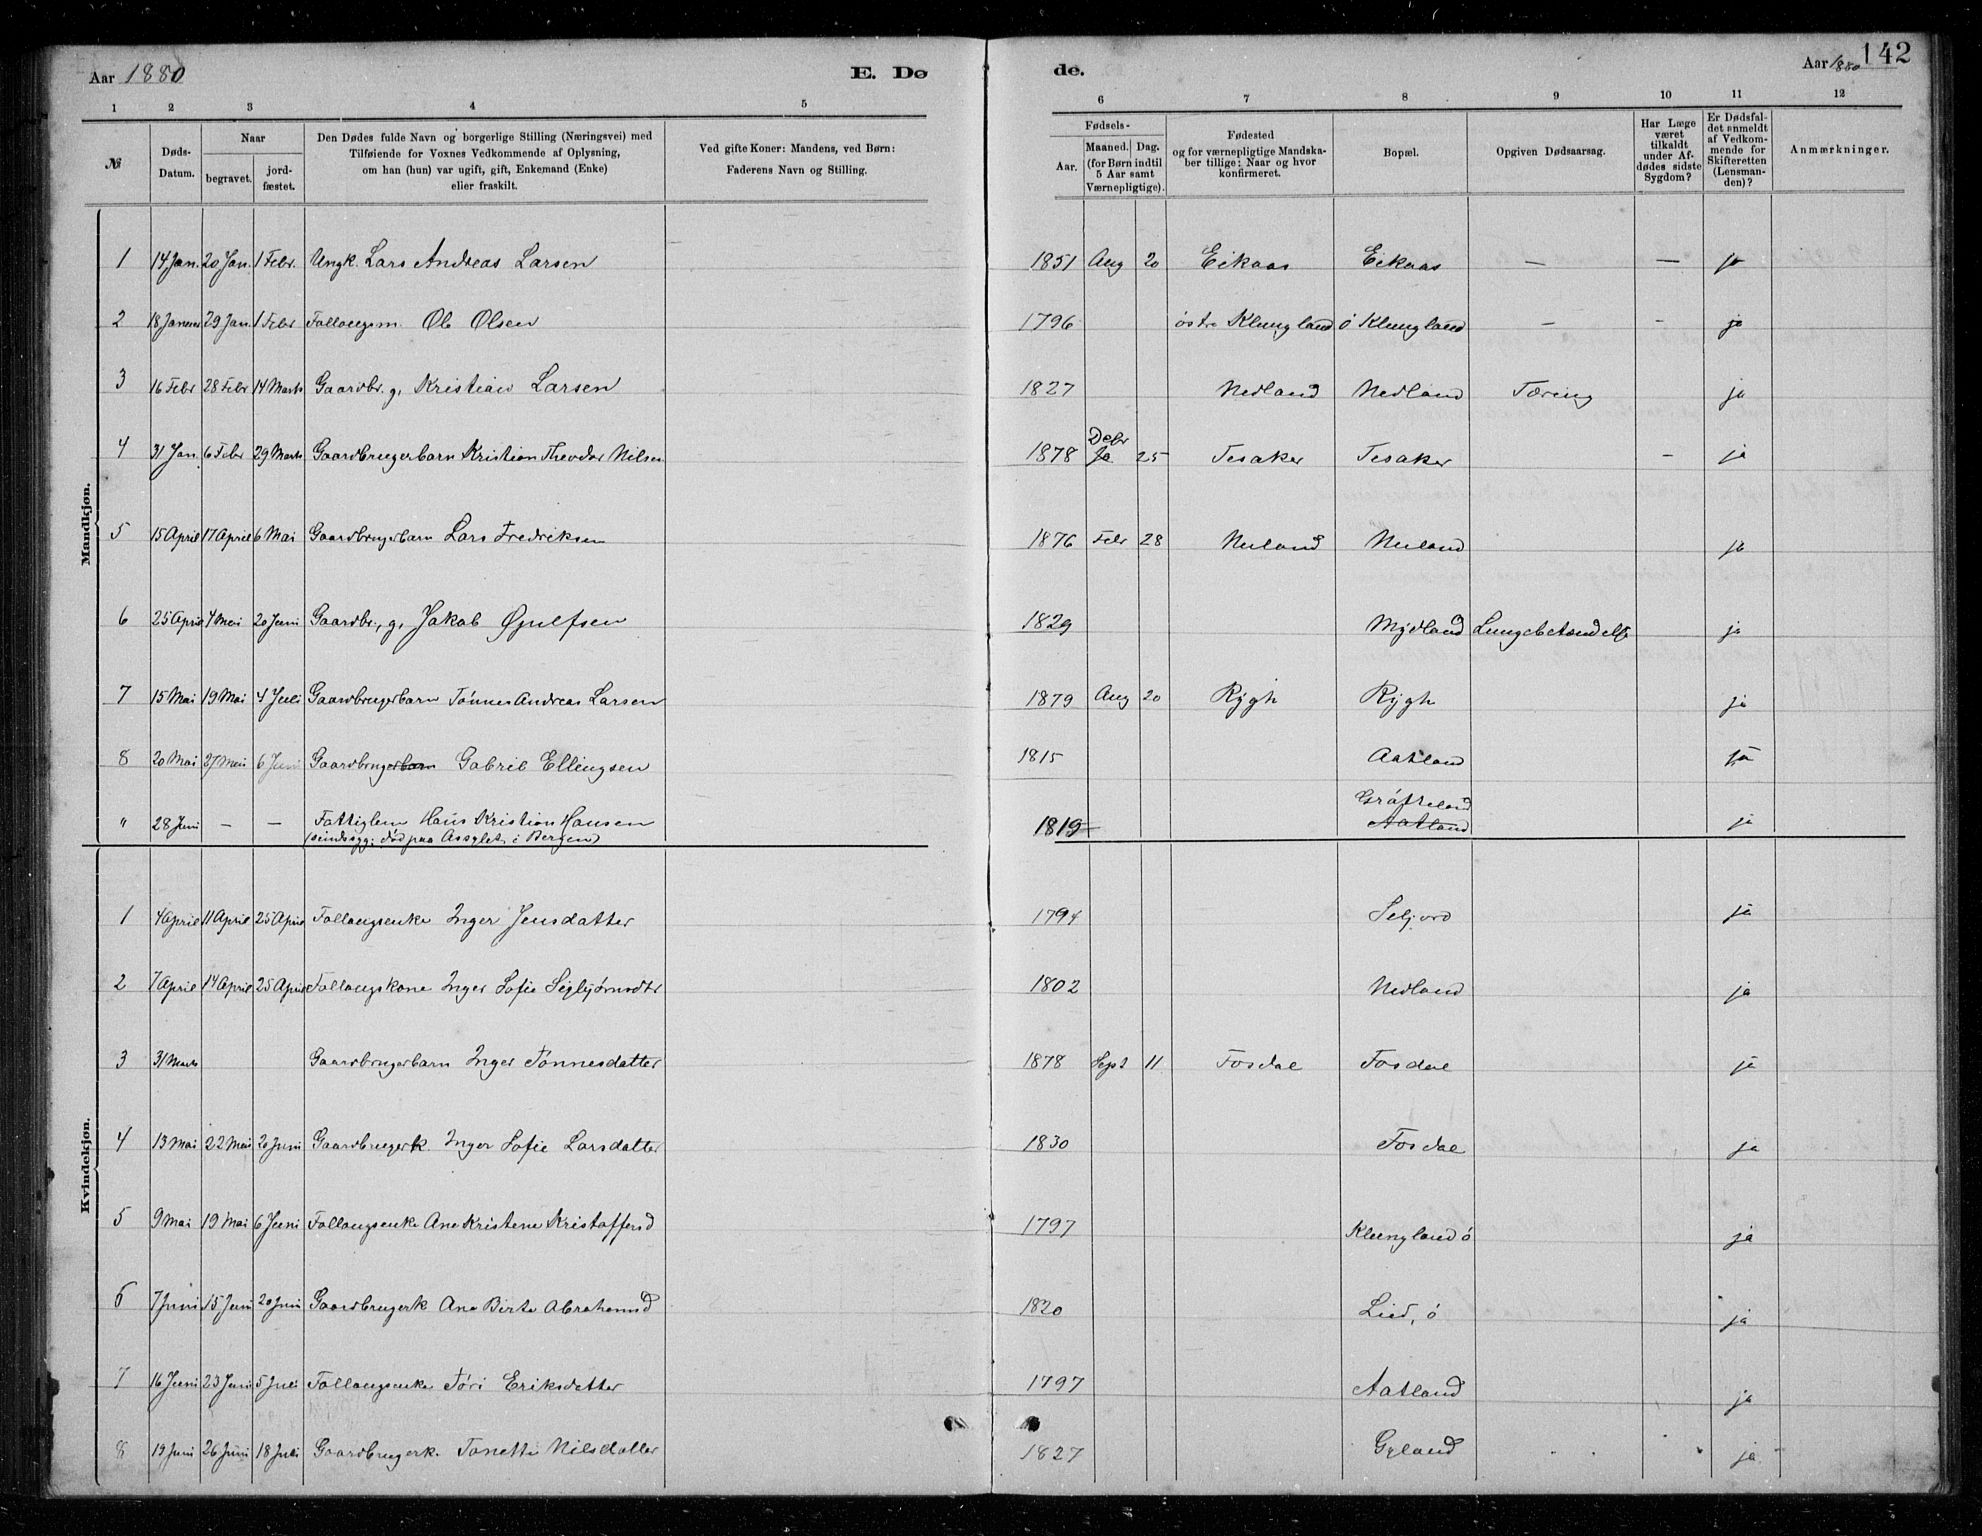 Aar 1880 E. Dø de. Aar 1880 142
1 2 3 4 5 6 7 8 9 10 11 12
№ Døds-Datum. Naar begravet. jord-fæstet. Den Dødes fulde Navn og borgerlige Stilling (Næringsvei) med Tilføiende for Voxnes Vedkommende af Oplysning, om han (hun) var ugift, gift, Enkemand (Enke) eller fraskilt. Ved gifte Koner: Mandens, ved Børn: Faderens Navn og Stilling. Fødsels- Aar. Maaned. Dag. (for Børn indtil 5 Aar samt Værnepligtige). Fødested og for værnepligtige Mandskaber tillige: Naar og hvor konfirmeret. Bopæl. Opgiven Dødsaarsag. Har Læge været tilkaldt under Afdødes sidste Sygdom? Er Dødsfaldet anmeldt af Vedkommende for Skifteretten (Lensmanden)? Anmærkninger.
Mandkjøn.
1 14 Jan. 20 Jan. 1 Febr. Ungk. Lars Andreas Larsen 1851 Aug 20 Eikaas Eikaas — — ja
2 18 Januar 29 Jan. 1 Febr Follaugsm. Ole Olsen 1796 østre Klungland ø Klungland — - ja
3 16 Febr 28 Febr 14 Marts Gaardbr. g. Kristian Larsen 1827 Nedland Nedland Tæring ja
4 31 Jan 6 Febr 29 Marts Gaardbrugerbarn Kristian Theodor Nilsen 1878 Debr Ja 25 Tesaker Tesaker - ja
5 15 April 17 April 6 Mai Gaardbrugerbarn Lars Fredriksen 1876 Febr 28 Nuland Nuland ja
6 25 April 4 Mai 20 Juni Gaardbr., g. Jakob Øyulfsen 1829 Mydland Lungebetændelse ja
7 15 Mai 19 Mai 4 Juli Gaardbrugerbarn Tønnes Andreas Larsen 1879 Aug 20 Rygh Rygh ja
8 20 Mai 27 Mai 6 Juni Gaardbrugerbarn Gabriel Ellingsen 1815 Aatland ja
" 28 Juni — — Fattiglem Hans Kristian Hansen 1819 Gråtteland Aatland ja
(sindssyg; død paa Assylet i Bergen)
Kvindekjøn.
1 4 April 11 April 25 April Follaugsenke Inger Jensdatter 1794 Seljord ja
2 7 April 14 April 25 April Follaugskone Inger Sofie Sigbjørnsdtr 1802 Nedland ja
3 31 Marts Gaardbrugerbarn Inger Tønnesdatter 1878 Sept 11 Fosdal Fosdal ja
4 13 Mai 22 Mai 20 Juni Gaardbrugerk. Inger Sofie Larsdatter 1830 Fosdal ja
5 9 Mai 19 Mai 6 Juni Follaugsenke Ane Kristene Kristoffersd 1797 Klungland ø ja
6 7 Juni 15 Juni 20 Juni Gaardbrugerk Ane Birte Abrahamsd 1820 Lied, ø ja
7 16 Juni 23 Juni 5 Juli Follaugsenke Tøri Eriksdatter 1797 Aatland ja
8 19 Juni 26 Juni 18 Juli Gaardbrugerk. Tonette Nilsdatter 1827 Gyland ja